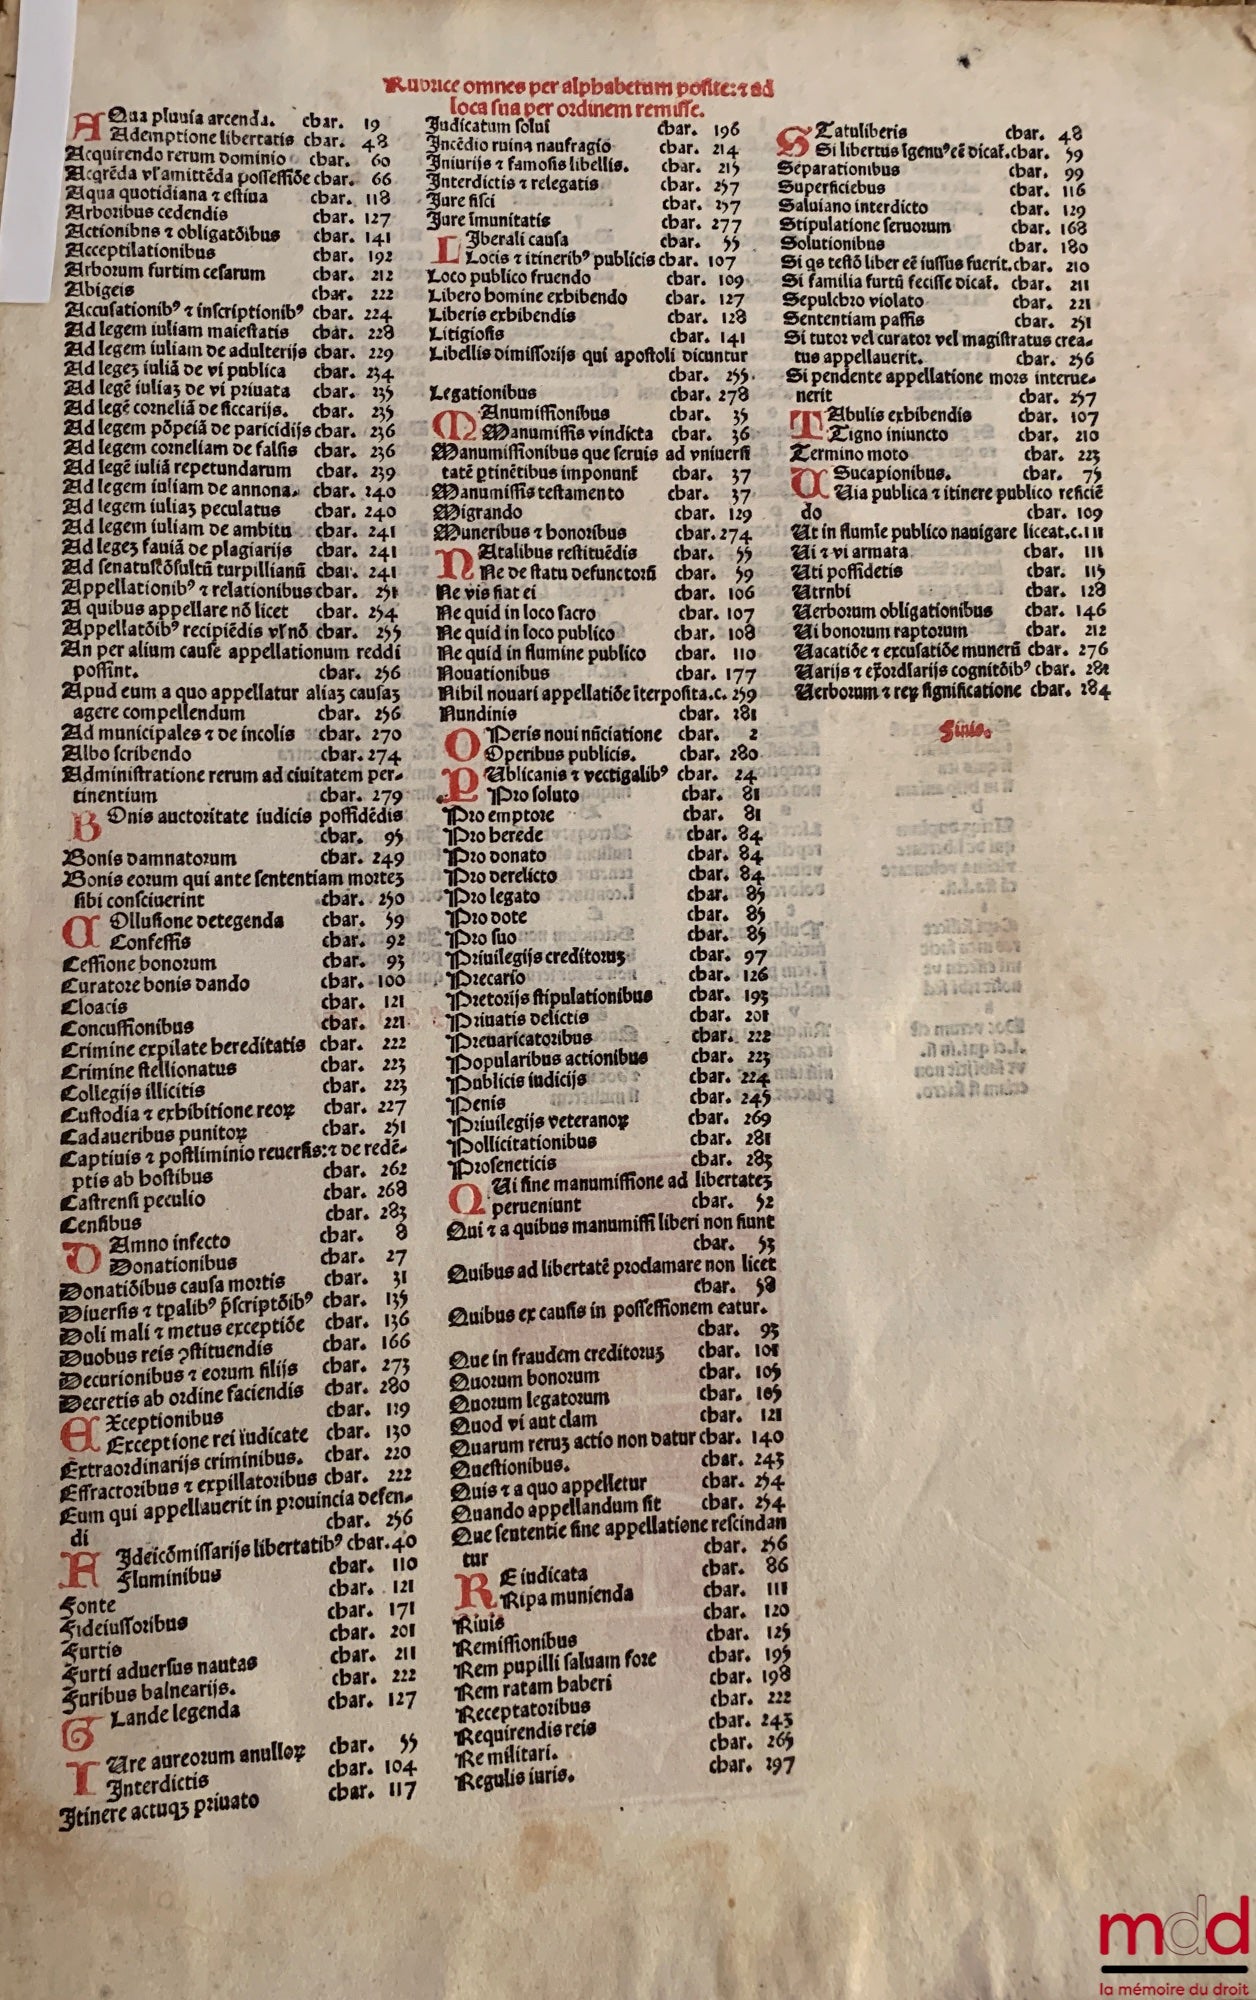 Rubrice omnes per alphabetum posite: ⁊ ad
loca sua per ordinem remisse.
AQua pluuia arcenda. char. 19
Ademptione libertatis char. 48
Acquirendo rerum dominio char. 60
Acqrẽda vľ amittẽda possessiõe char. 66
Aqua quotidiana ⁊ estiua char. 118
Arboribus cedendis char. 127
Actionibns ⁊ obligatõibus char. 141
Acceptilationibus char. 192
Arborum furtim cesarum char. 212
Abigeis char. 222
Accusationibꝰ ⁊ inscriptionibꝰ char. 224
Ad legem iuliam maiestatis char. 228
Ad legem iuliam de adulterijs char. 229
Ad legeꝫ iuliã de vi publica char. 234
Ad legẽ iuliaꝫ de vi priuata char. 235
Ad legẽ corneliã de siccarijs. char. 235
Ad legem põpeiã de paricidijs char. 236
Ad legem corneliam de falsis char. 236
Ad legẽ iuliã repetundarum char. 239
Ad legem iuliam de annona. char. 240
Ad legem iuliaꝫ peculatus char. 240
Ad legem iuliam de ambitu char. 241
Ad legeꝫ fauiã de plagiarijs char. 241
Ad senatuscõsultũ turpillianũ char. 241
Appellationibꝰ ⁊ relationibus char. 251
A quibus appellare nõ licet char. 254
Appellatõibꝰ recipiẽdis vľ nõ char. 255
An per alium cause appellationum reddi
possint. char. 256
Apud eum a quo appellatur aliaꝫ causaꝫ
agere compellendum char. 256
Ad municipales ⁊ de incolis char. 270
Albo scribendo char. 274
Administratione rerum ad ciuitatem per-
tinentium char. 279
BOnis auctoritate iudicis possidẽdis
char. 95
Bonis damnatorum char. 249
Bonis eorum qui ante sententiam morteꝫ
sibi consciuerint char. 250
COllusione detegenda char. 59
Confessis char. 92
Cessione bonorum char. 93
Curatore bonis dando char. 100
Cloacis char. 121
Concussionibus char. 221
Crimine expilate hereditatis char. 222
Crimine stellionatus char. 223
Collegijs illicitis char. 223
Custodia ⁊ exhibitione reoꝝ char. 227
Cadaueribus punitoꝝ char. 251
Captiuis ⁊ postliminio reuersis: ⁊ de redẽ-
ptis ab hostibus char. 262
Castrensi peculio char. 268
Censibus char. 283
DAmno infecto char. 8
Donationibus char. 27
Donatiõibus causa mortis char. 31
Diuersis ⁊ tpalibꝰ p̃scriptõibꝰ char. 135
Doli mali ⁊ metus exceptiõe char. 136
Duobus reis ꝯstituendis char. 166
Decurionibus ⁊ eorum filijs char. 273
Decretis ab ordine faciendis char. 280
EXceptionibus char. 129
Exceptione rei iudicate char. 130
Extraordinarijs criminibus. char. 220
Effractoribus ⁊ expillatoribus char. 222
Eum qui appellauerit in prouincia defen-
di char. 256
FIdeicõmissarijs libertatibꝰ char. 40
Fluminibus char. 110
Fonte char. 121
Fideiussoribus char. 171
Furtis char. 201
Furti aduersus nautas char. 211
Furibus balnearijs. char. 222
GLande legenda char. 127
IUre aureorum anulloꝝ char. 55
Interdictis char. 104
Itinere actuqꝫ priuato char. 117
Iudicatum solui char. 196
Incẽdio ruina naufragio char. 214
Iniurijs ⁊ famosis libellis. char. 215
Interdictis ⁊ relegatis char. 257
Iure fisci char. 257
Iure ĩmunitatis char. 277
LIberali causa char. 55
Locis ⁊ itineribꝰ publicis char. 107
Loco publico fruendo char. 109
Libero homine exhibendo char. 127
Liberis exhibendis char. 128
Litigiosis char. 141
Libellis dimissorijs qui apostoli dicuntur
char. 255.
Legationibus char. 278
MAnumissionibus char. 35
Manumissis vindicta char. 36
Manumissionibus que seruis ad vniuersi
tatẽ ꝑtinẽtibus imponunt̃ char. 37
Manumissis testamento char. 37
Migrando char. 129
Muneribus ⁊ honoribus char. 274
NAtalibus restituẽdis char. 55
Ne de statu defunctorũ char. 59
Ne vis fiat ei char. 106
Ne quid in loco sacro char. 107
Ne quid in loco publico char. 108
Ne quid in flumine publico char. 110
Nouationibus char. 177
Nihil nouari appellatiõe ĩterposita. c. 259
Nundinis char. 281
OPeris noui nũciatione char. 2
Operibus publicis. char. 280
PUblicanis ⁊ vectigalibꝰ char. 24
Pro soluto char. 81
Pro emptore char. 81
Pro herede char. 84
Pro donato char. 84
Pro derelicto char. 84
Pro legato char. 85
Pro dote char. 85
Pro suo char. 85
Priuilegijs creditoruꝫ char. 97
Precario char. 126
Pretorijs stipulationibus char. 193
Priuatis delictis char. 201
Preuaricatoribus char. 222
Popularibus actionibus char. 223
Publicis iudicijs char. 224
Penis char. 245
Priuilegijs veteranoꝝ char. 269
Pollicitationibus char. 281
Proseneticis char. 283
QUi sine manumissione ad libertateꝫ
perueniunt char. 52
Qui ⁊ a quibus manumissi liberi non fiunt
char. 53
Quibus ad libertatẽ proclamare non licet
char. 58
Quibus ex causis in possessionem eatur.
char. 93
Que in fraudem creditoruꝫ char. 101
Quorum bonorum char. 105
Quorum legatorum char. 105
Quod vi aut clam char. 121
Quarum reruꝫ actio non datur char. 140
Questionibus. char. 243
Quis ⁊ a quo appelletur char. 254
Quando appellandum sit char. 254
Que sententie sine appellatione rescindan
tur char. 256
RE iudicata char. 86
Ripa munienda char. 111
Riuis char. 120
Remissionibus char. 125
Rem pupilli saluam fore char. 195
Rem ratam haberi char. 198
Receptatoribus char. 222
Requirendis reis char. 243
Re militari. char. 265
Regulis iuris. char. 297
STatuliberis char. 48
Si libertus ĩgenuꝰ eẽ dicat̃. char. 59
Separationibus char. 99
Superficiebus char. 116
Saluiano interdicto char. 129
Stipulatione seruorum char. 168
Solutionibus char. 180
Si qs testõ liber eẽ iussus fuerit. char. 210
Si familia furtũ fecisse dicat̃. char. 211
Sepulchro violato char. 221
Sententiam passis char. 251
Si tutor vel curator vel magistratus crea-
tus appellauerit. char. 256
Si pendente appellatione mors interue-
nerit char. 257
TAbulis exhibendis char. 107
Tigno iniuncto char. 210
Termino moto char. 223
USucapionibus. char. 75
Uia publica ⁊ itinere publico reficiẽ
do char. 109
Ut in flumĩe publico nauigare liceat. c. 111
Ui ⁊ vi armata char. 111
Uti possidetis char. 115
Utrnbi char. 128
Uerborum obligationibus char. 146
Ui bonorum raptorum char. 212
Uacatiõe ⁊ excusatiõe munerũ char. 276
Uarijs ⁊ ex̃ordĩarijs cognitõibꝰ char. 281
Uerborum ⁊ reꝝ significatione char. 284
Finis.
mdd
la mémoire du droit